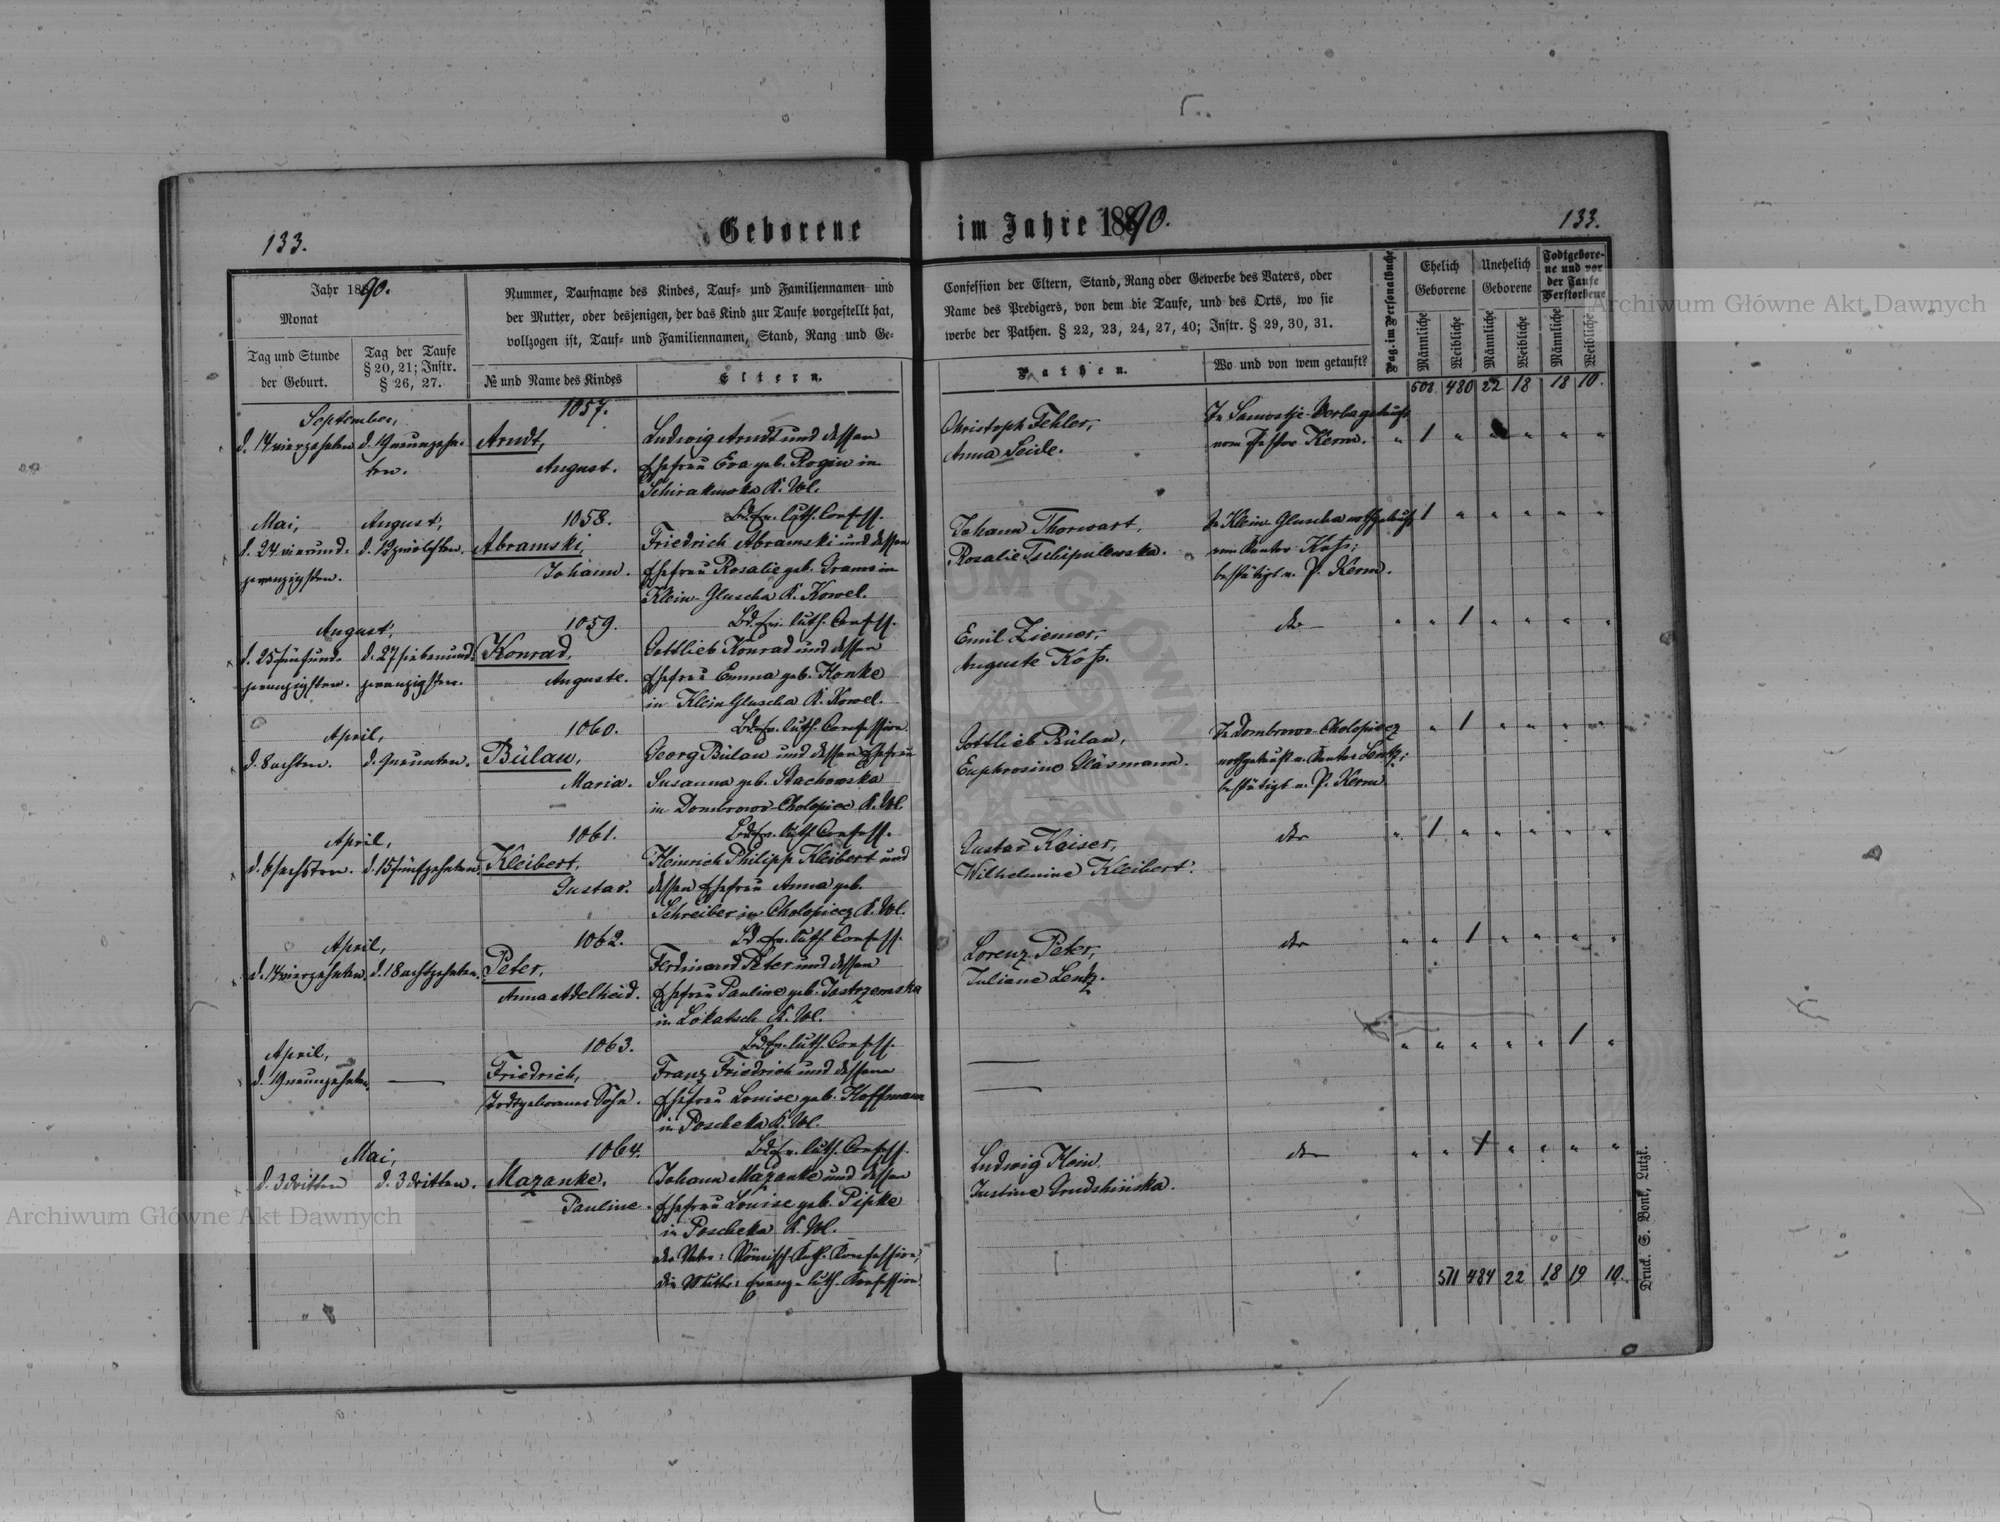 133.
Geborene
im Jahre 1890.
133.
Jahr 1890.
Monat
Tag und Stunde
der Geburt.
Tag der Taufe
§ 20, 21; Instr.
§ 26, 27.
Nummer, Taufname des Kindes, Tauf- und Familiennamen und
der Mutter, oder desjenigen, der das Kind zur Taufe vorgestellt hat,
vollzogen ist, Tauf- und Familiennamen, Stand, Rang und Ge-
№ und Name des Kindes
Eltern.
Confession der Eltern, Stand, Rang oder Gewerbe des Vaters, oder
Name des Predigers, von dem die Taufe, und des Orts, wo sie
werbe der Pathen. § 22, 23, 24, 27, 40; Instr. § 29, 30, 31.
Pathen.
Wo und von wem getauft?
Pag. im Personalbuche
Ehelich
Geborene
Unehelich
Geborene
Todtgebore-
ne und vor
der Taufe
Verstorbene
Männliche
Weibliche
Männliche
Weibliche
Männliche
Weibliche
508 480 22 18 18 10.
September,
d. 14 vierzehnten
d. 19 neunzehn-
ten.
1057.
Arndt,
August.
Ludwig Arndt und dessen
Ehefrau Eva geb. Rogin in
K. Wl.
Christoph Fehler,
Anna Seide.
getauft
vom Pastor Kerm.
1
Mai,
d. 24 vierund-
zwanzigsten.
August,
d. 12 zwölften.
1058.
Abramski,
Johann.
Bd. ev. luth. Confess.
Friedrich Abramski und dessen
Ehefrau Rosalie geb. Grams in
Klein-Gluscha K. Kowel.
Johann Thorwart,
Rosalie Tschipulewska.
In Klein-Gluscha nothgetauft
von Kantor Koss;
bestätigt v. P. Kerm.
1
August,
d. 25 fünfund-
zwanzigsten.
d. 27 siebenund-
zwanzigsten.
1059.
Konrad,
Auguste.
Bd. ev. luth. Confess.
Gottlieb Konrad und dessen
Ehefrau Emma geb. Konke
in Klein Gluscha K. Kowel.
Emil Ziemer,
Auguste Koss.
dto
1
April,
d. 8 achten.
d. 9 neunten.
1060.
Bülau,
Maria.
Bd. ev. luth. Confession
Georg Bülau und dessen Ehefrau
Susanna geb. Stachowska
in Dombrowo-Cholopiec K. Wl.
Gottlieb Bülau,
Euphrosine Gläsmann.
In Dombrowo-Cholopiecz
nothgetauft v. Kantor Lentz;
bestätigt v. P. Kerm.
1
April,
d. 6 sechsten.
d. 15 fünfzehnten.
1061.
Kleibert,
Gustav.
Bd. ev. luth. Confess.
Heinrich Philipp Kleibert und
dessen Ehefrau Anna geb.
Schreiber in Cholopiecz K. Wl.
Gustav Kaiser,
Wilhelmine Kleibert.
dto
1
April,
d. 14 vierzehnten.
d. 18 achtzehnten.
1062.
Peter,
Anna Adelheid.
Bd. ev. luth. Confess.
Ferdinand Peter und dessen
Ehefrau Pauline geb. Jastrzemska
in Lokatsch K. Wl.
Lorenz Peter,
Juliane Lentz.
dto
1
April,
d. 19 neunzehnten.
1063.
Friedrich,
Todtgeborener Sohn.
Bd. ev. luth. Confess.
Franz Friedrich und dessen
Ehefrau Louise geb. Hoffmann
in Poscheka K. Wl.
1
Mai,
d. 3 dritten
d. 3 dritten.
1064.
Mazanke,
Pauline.
Bd. ev. luth. Confess.
Johann Mazanke und dessen
Ehefrau Louise geb. Pipke
in Poscheka K. Wl.
der Vater: Römisch-Kath. Confession,
die Mutter: Evang.-luth. Confession
Ludwig Klein,
Justine Grudshinska.
dto
1
511 484 22 18 19 10.
Druck. S. Bonk, Lutzk.
Archiwum Główne Akt Dawnych
Archiwum Główne Akt Dawnych